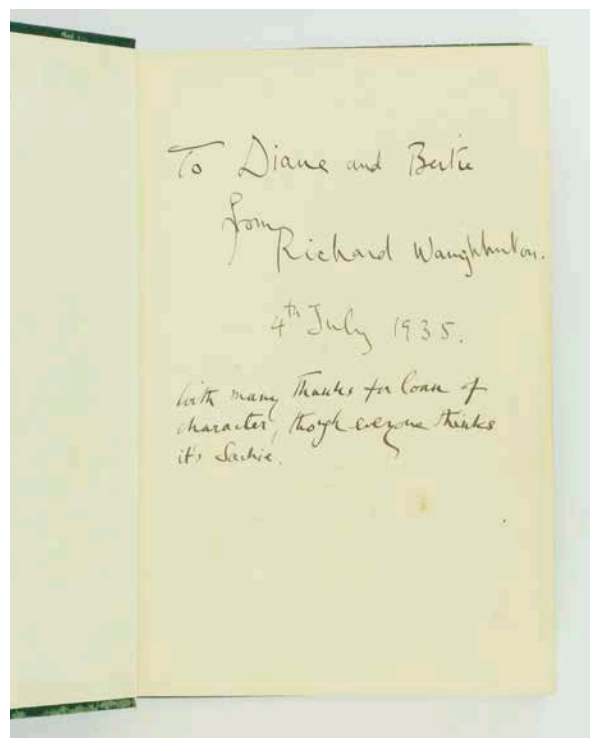 To Diane and Bertie
from
Richard Waughburton.
4th July 1935.
With many thanks for loan of
character, though everyone thinks
it's Sachie.